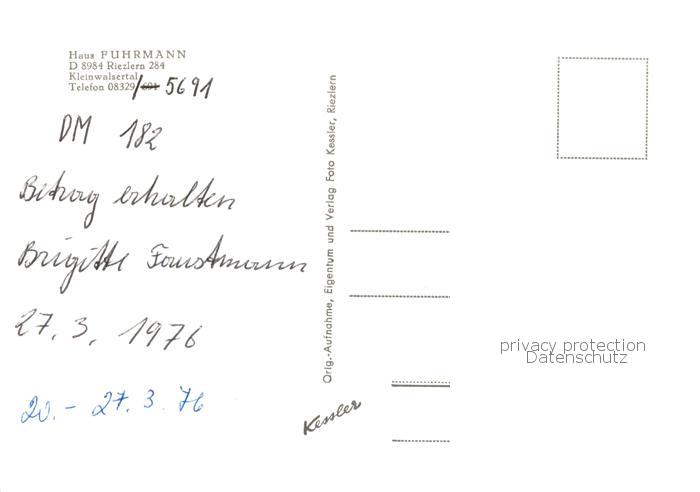 Haus FUHRMANN
D 8984 Riezlern 284
Kleinwalsertal
Telefon 08329/691 5691
DM 182
Betrag erhalten
Brigitte Faustmann
27. 3. 1976
20. - 27. 3. 76
Orig.-Aufnahme, Eigentum und Verlag Foto Kessler, Riezlern
Kessler
privacy protection
Datenschutz